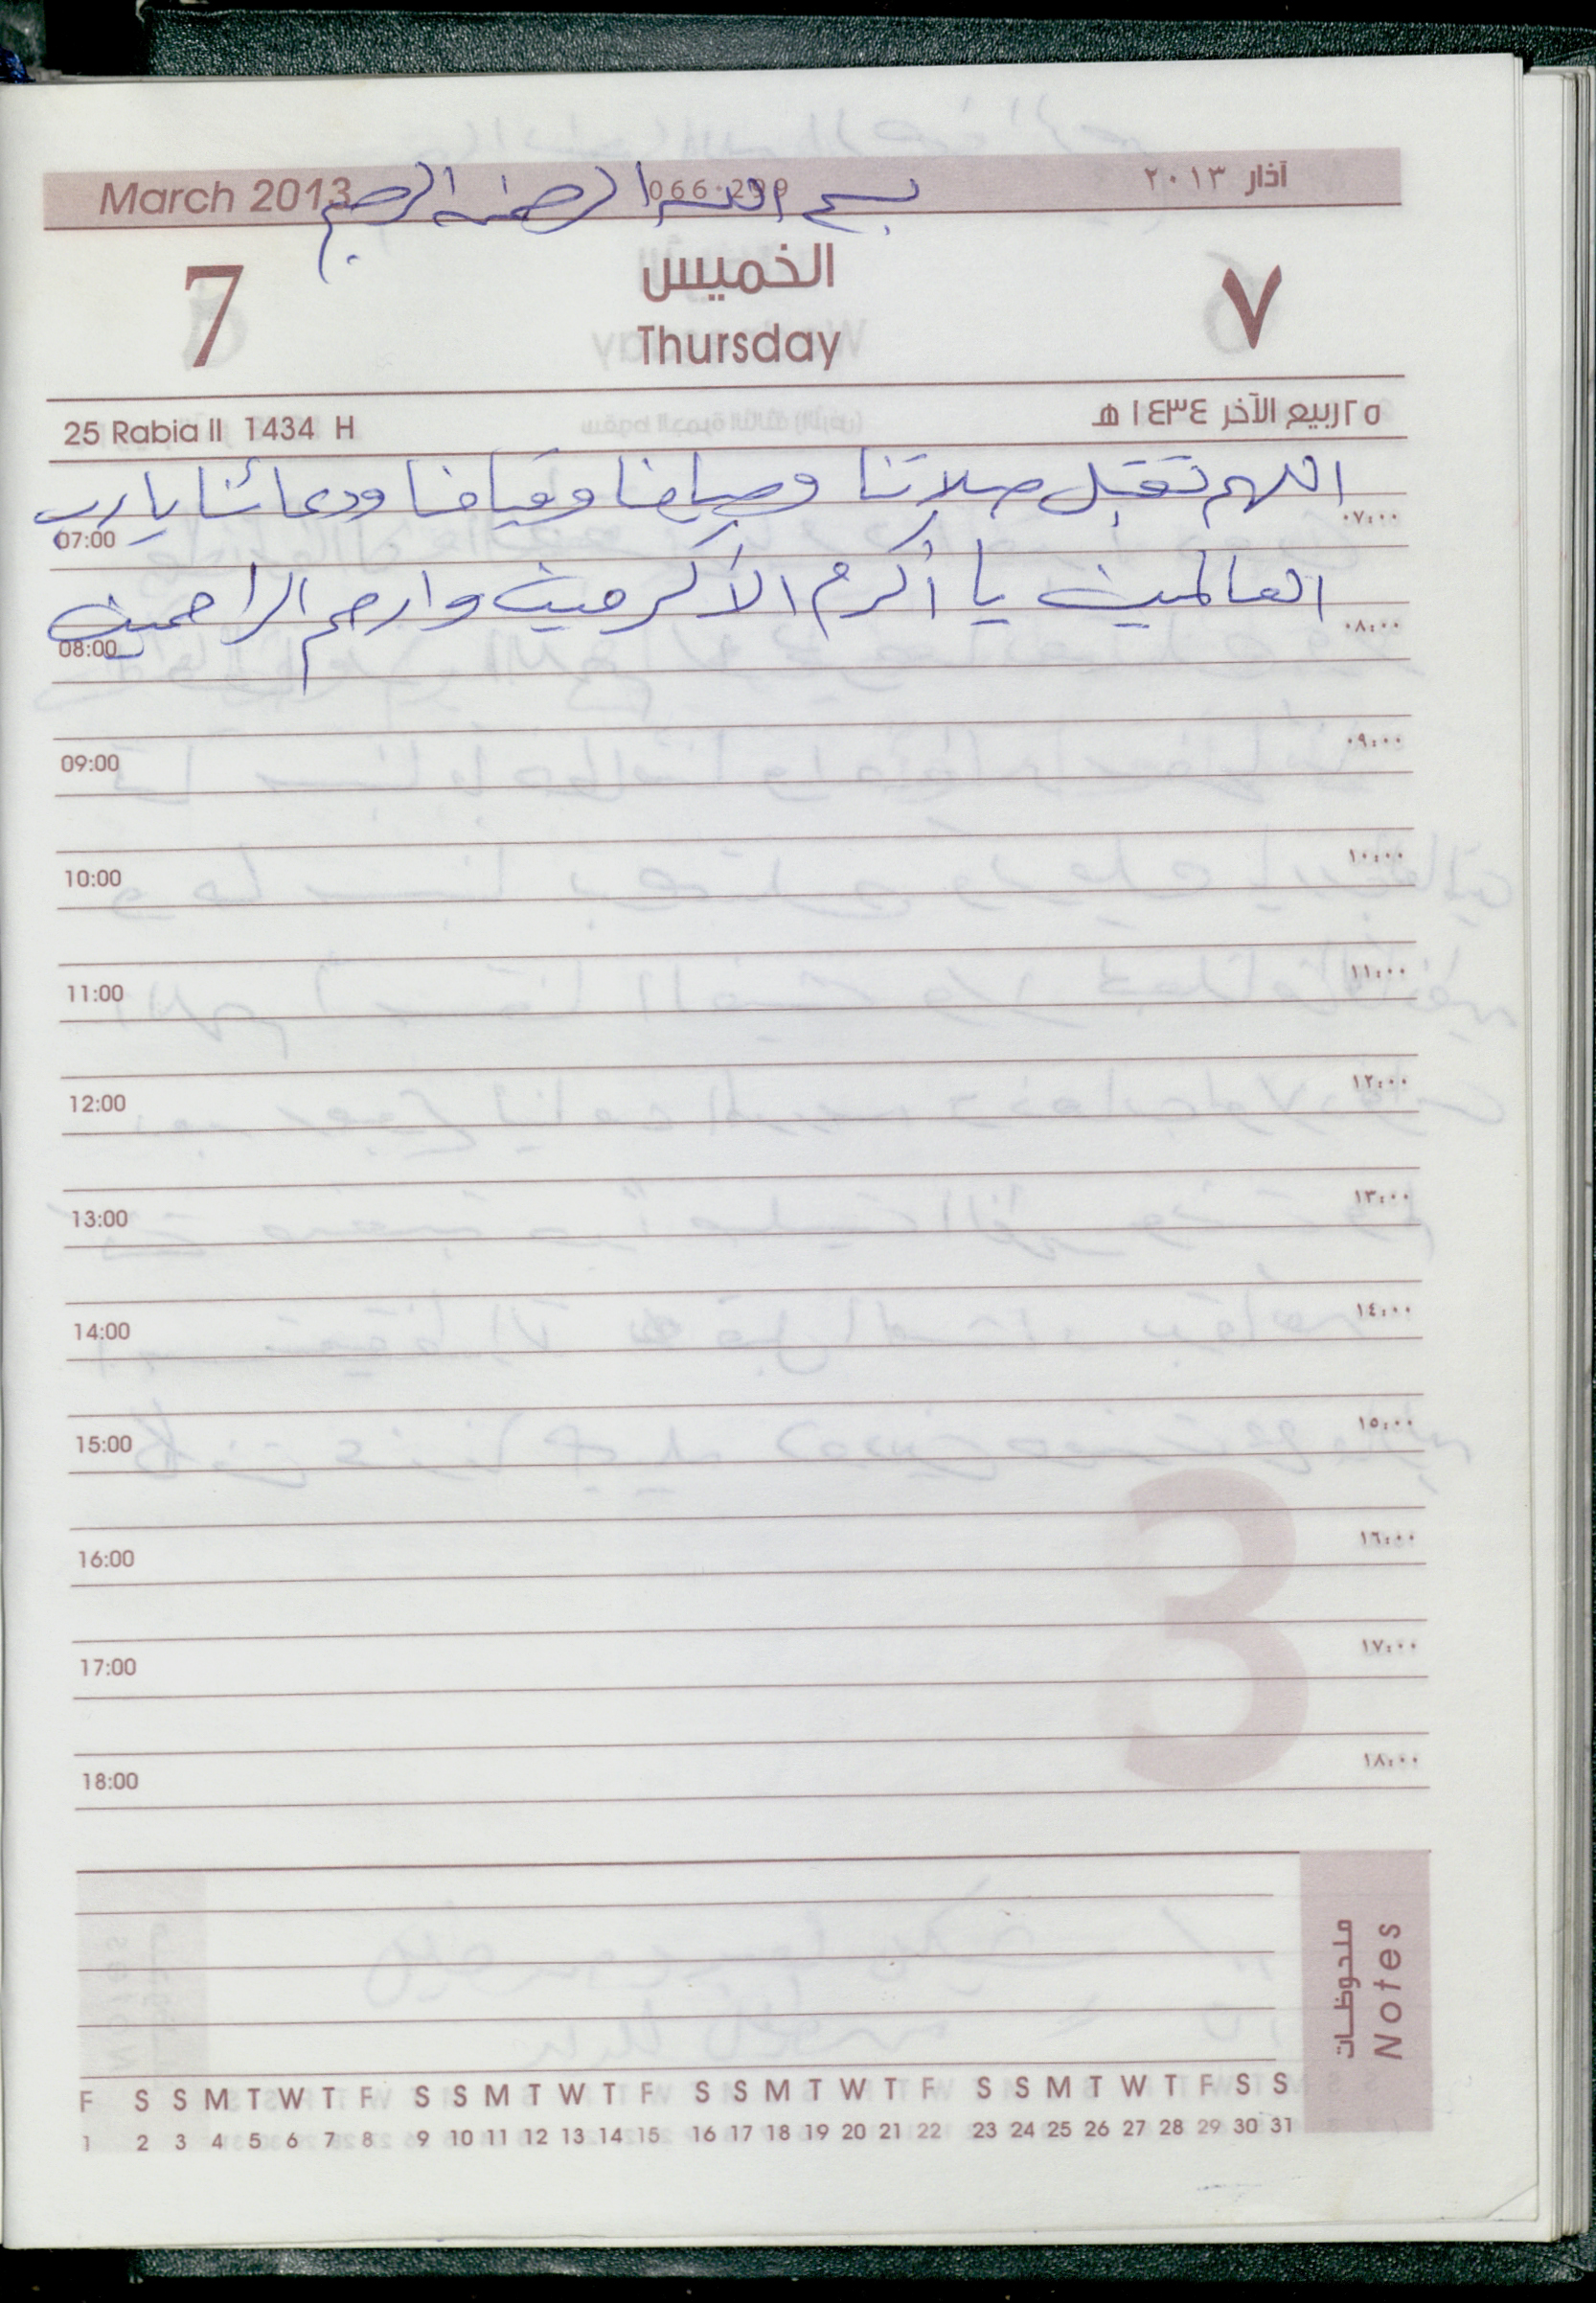 March 2013 066-299 آذار ٢٠١٣
بسم الله الرحمن الرحيم
7 الخميس ٧
Thursday
25 Rabia II 1434 H ٢٥ ربيع الآخر ١٤٣٤ هـ
اللهم تقبل صلاتنا وصيامنا وقيامنا ودعائنا يا رب
07:00 ٠٧:٠٠
العالمين يا أكرم الأكرمين وارحم الراحمين
08:00 ٠٨:٠٠
09:00 ٠٩:٠٠
10:00 ١٠:٠٠
11:00 ١١:٠٠
12:00 ١٢:٠٠
13:00 ١٣:٠٠
14:00 ١٤:٠٠
15:00 ١٥:٠٠
16:00 ١٦:٠٠
17:00 ١٧:٠٠
18:00 ١٨:٠٠
3
ملحوظات
Notes
F S S M T W T F S S M T W T F S S M T W T F S S M T W T F S S
1 2 3 4 5 6 7 8 9 10 11 12 13 14 15 16 17 18 19 20 21 22 23 24 25 26 27 28 29 30 31